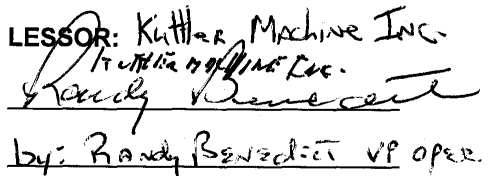 LESSOR: Kuttler Machine Inc.
Kuttler Machine Inc.
Randy Benedict
by: Randy Benedict VP Oper.